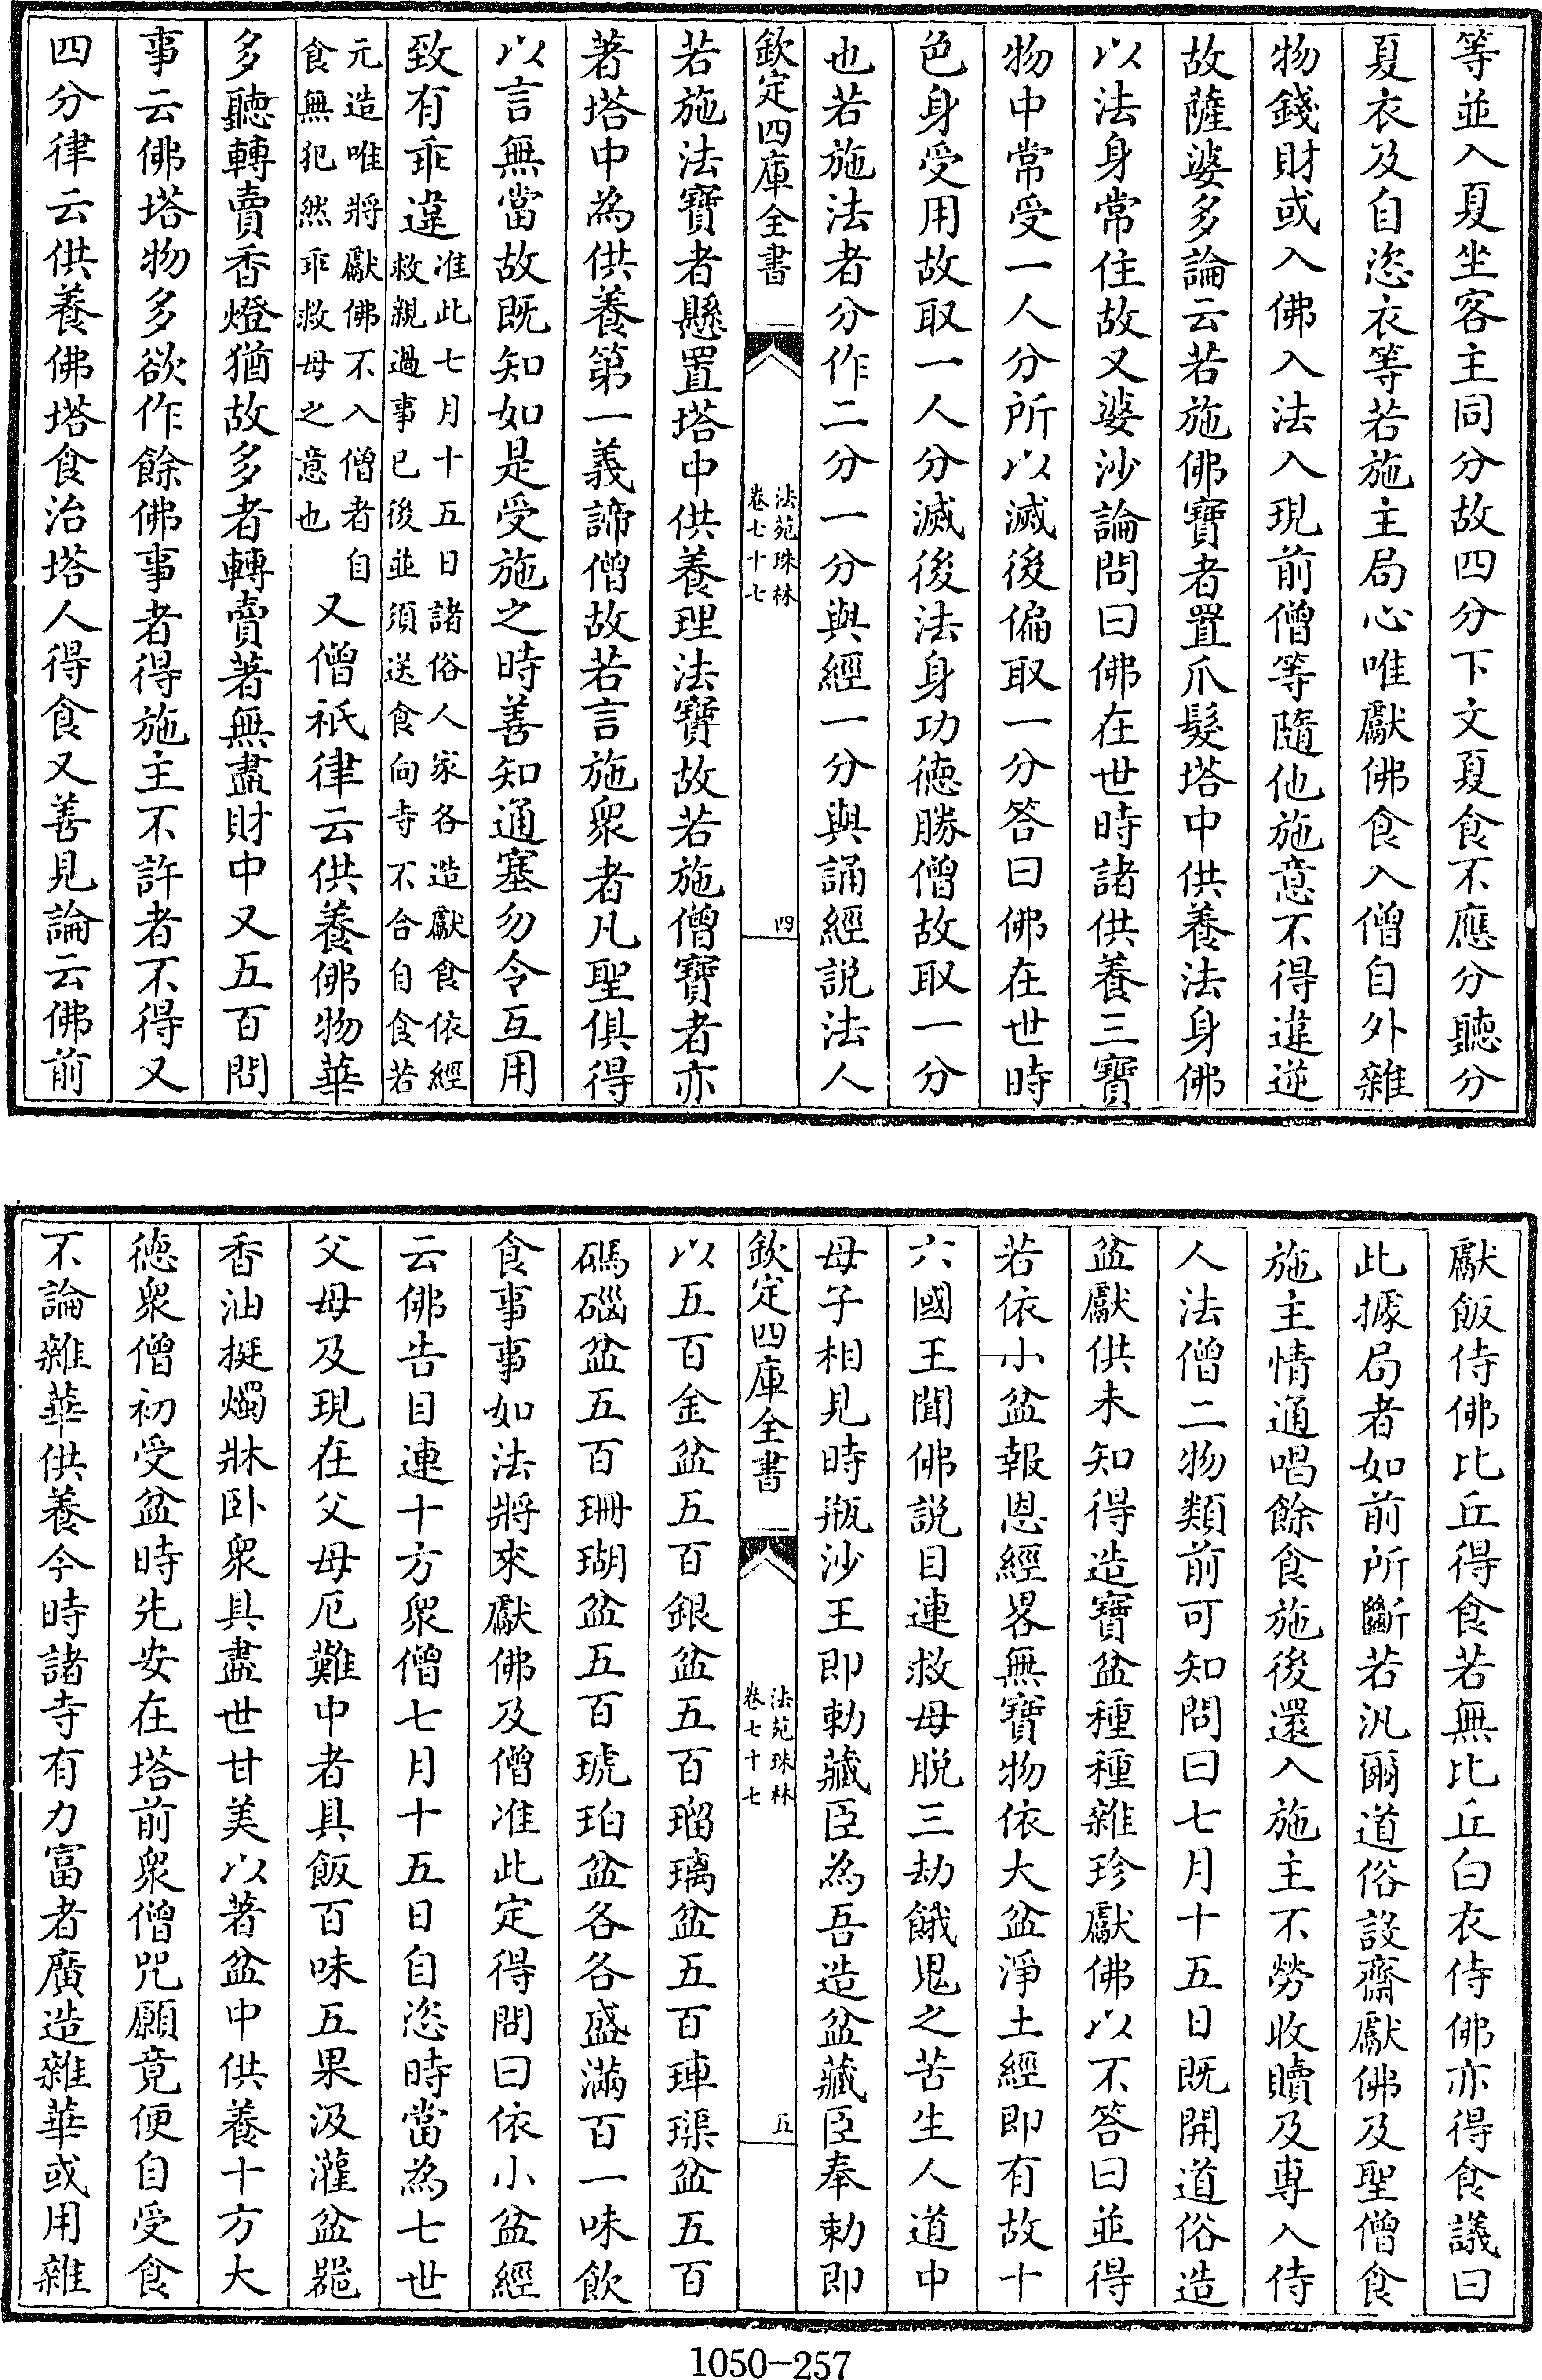 等並入夏坐客主同分故四分下文夏食不應分聽分
夏衣及自恣衣等若施主局心唯獻佛食入僧自外雜
物錢財或入佛入法入現前僧等隨他施意不得違逆
故薩婆多論云若施佛寶者置爪髮塔中供養法身佛
以法身常住故又婆沙論問曰佛在世時諸供養三寶
物中常受一人分所以滅後偏取一分答曰佛在世時
色身受用故取一人分滅後法身功徳勝僧故取一分
也若施法者分作二分一分與經一分與誦經説法人
欽定四庫全書
法苑珠林
卷七十七
四
若施法寶者懸置塔中供養理法寶故若施僧寶者亦
著塔中為供養第一義諦僧故若言施衆者凡聖俱得
以言無當故既知如是受施之時善知通塞勿令互用
致有乖違准此七月十五日諸俗人家各造獻食依經
救親過事已後並須送食向寺不合自食若
元造唯將獻佛不入僧者自
食無犯然乖救母之意也
又僧祇律云供養佛物華
多聽轉賣香燈猶故多者轉賣著無盡財中又五百問
事云佛塔物多欲作餘佛事者得施主不許者不得又
四分律云供養佛塔食治塔人得食又善見論云佛前
獻飯侍佛比丘得食若無比丘白衣侍佛亦得食議曰
此據局者如前所斷若汎爾道俗設齋獻佛及聖僧食
施主情通唱餘食施後還入施主不勞收贖及專入侍
人法僧二物類前可知問曰七月十五日既開道俗造
盆獻供未知得造寶盆種種雜珍獻佛以不答曰並得
若依小盆報恩經畧無寶物依大盆淨土經即有故十
六國王聞佛説目連救母脱三劫餓鬼之苦生人道中
母子相見時瓶沙王即勅藏臣為吾造盆藏臣奉勅即
欽定四庫全書
法苑珠林
卷七十七
五
以五百金盆五百銀盆五百瑠璃盆五百硨磲盆五百
碼碯盆五百珊瑚盆五百琥珀盆各各盛滿百一味飲
食事事如法將來獻佛及僧准此定得問曰依小盆經
云佛告目連十方衆僧七月十五日自恣時當為七世
父母及現在父母厄難中者具飯百味五果汲灌盆器
香油挺燭牀卧衆具盡世甘美以著盆中供養十方大
徳衆僧初受盆時先安在塔前衆僧咒願竟便自受食
不論雜華供養今時諸寺有力富者廣造雜華或用雜
1050-257